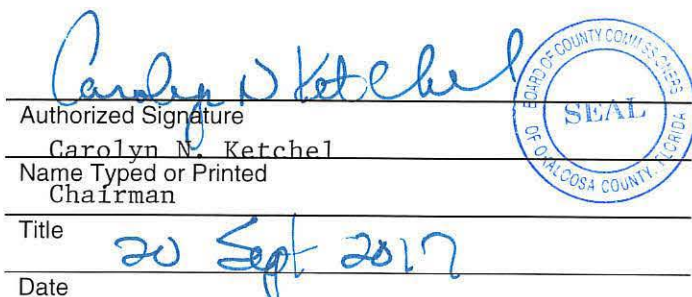 Carolyn N Ketchel
Authorized Signature
Carolyn N. Ketchel
Name Typed or Printed
Chairman
Title
20 Sept 2017
Date
BOARD OF COUNTY COMMISSIONERS
SEAL
OF OKALOOSA COUNTY, FLORIDA